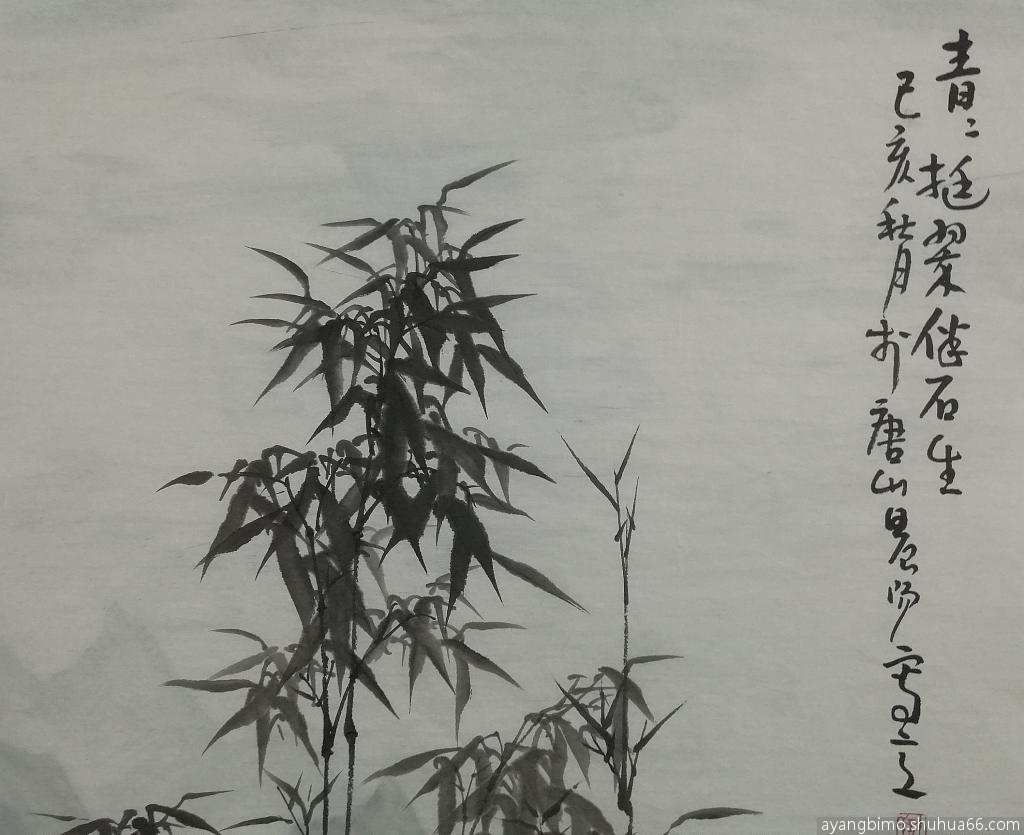 青〻挺翠伴石生
己亥秋月于唐山晨阳写之
ayangbimo.shuhua66.com